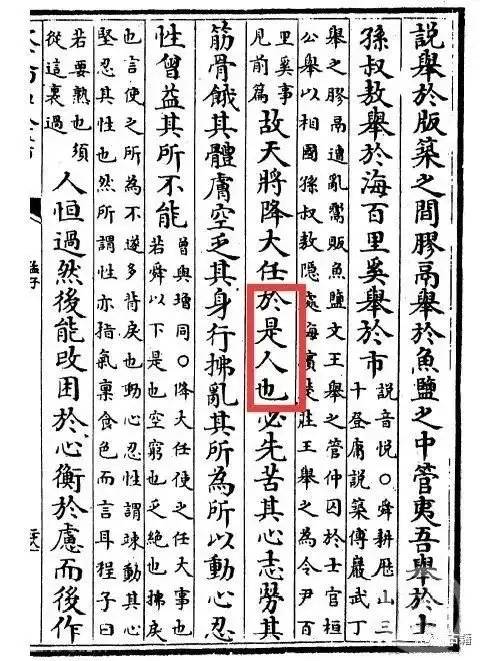 說舉於版築之間膠鬲舉於魚鹽之中管夷吾舉於士
孫叔敖舉於海百里奚舉於市
說音悅○舜耕歷山三
十登庸說築傅巖武丁
舉之膠鬲遭亂鬻販魚鹽文王舉之管仲囚於士官桓
公舉以相國孫叔敖隱處海濱楚莊王舉之為令尹百
里奚事
見前篇
故天將降大任於是人也必先苦其心志勞其
筋骨餓其體膚空乏其身行拂亂其所為所以動心忍
性曾益其所不能
曾與增同○降大任使之任大事也
若舜以下是也空窮也乏絕也拂戾
也言使之所為不遂多背戾也動心忍性謂竦動其心
堅忍其性也然所謂性亦指氣稟食色而言耳程子曰
若要熟也須
從這裏過
人恒過然後能改困於心衡於慮而後作
孟子
古籍